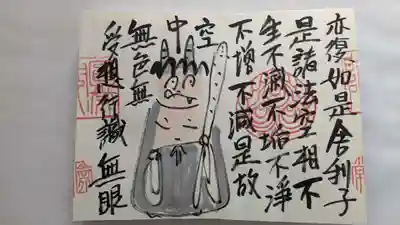 亦復如是舍利子
是諸法空相不
生不滅不垢不淨
不增不減是故
空
中
無色無
受想行識無眼